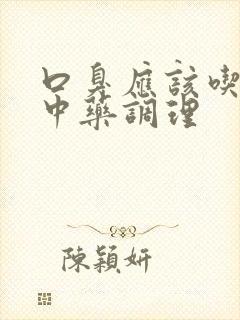 口臭應該喫
中藥調理
陳穎妍